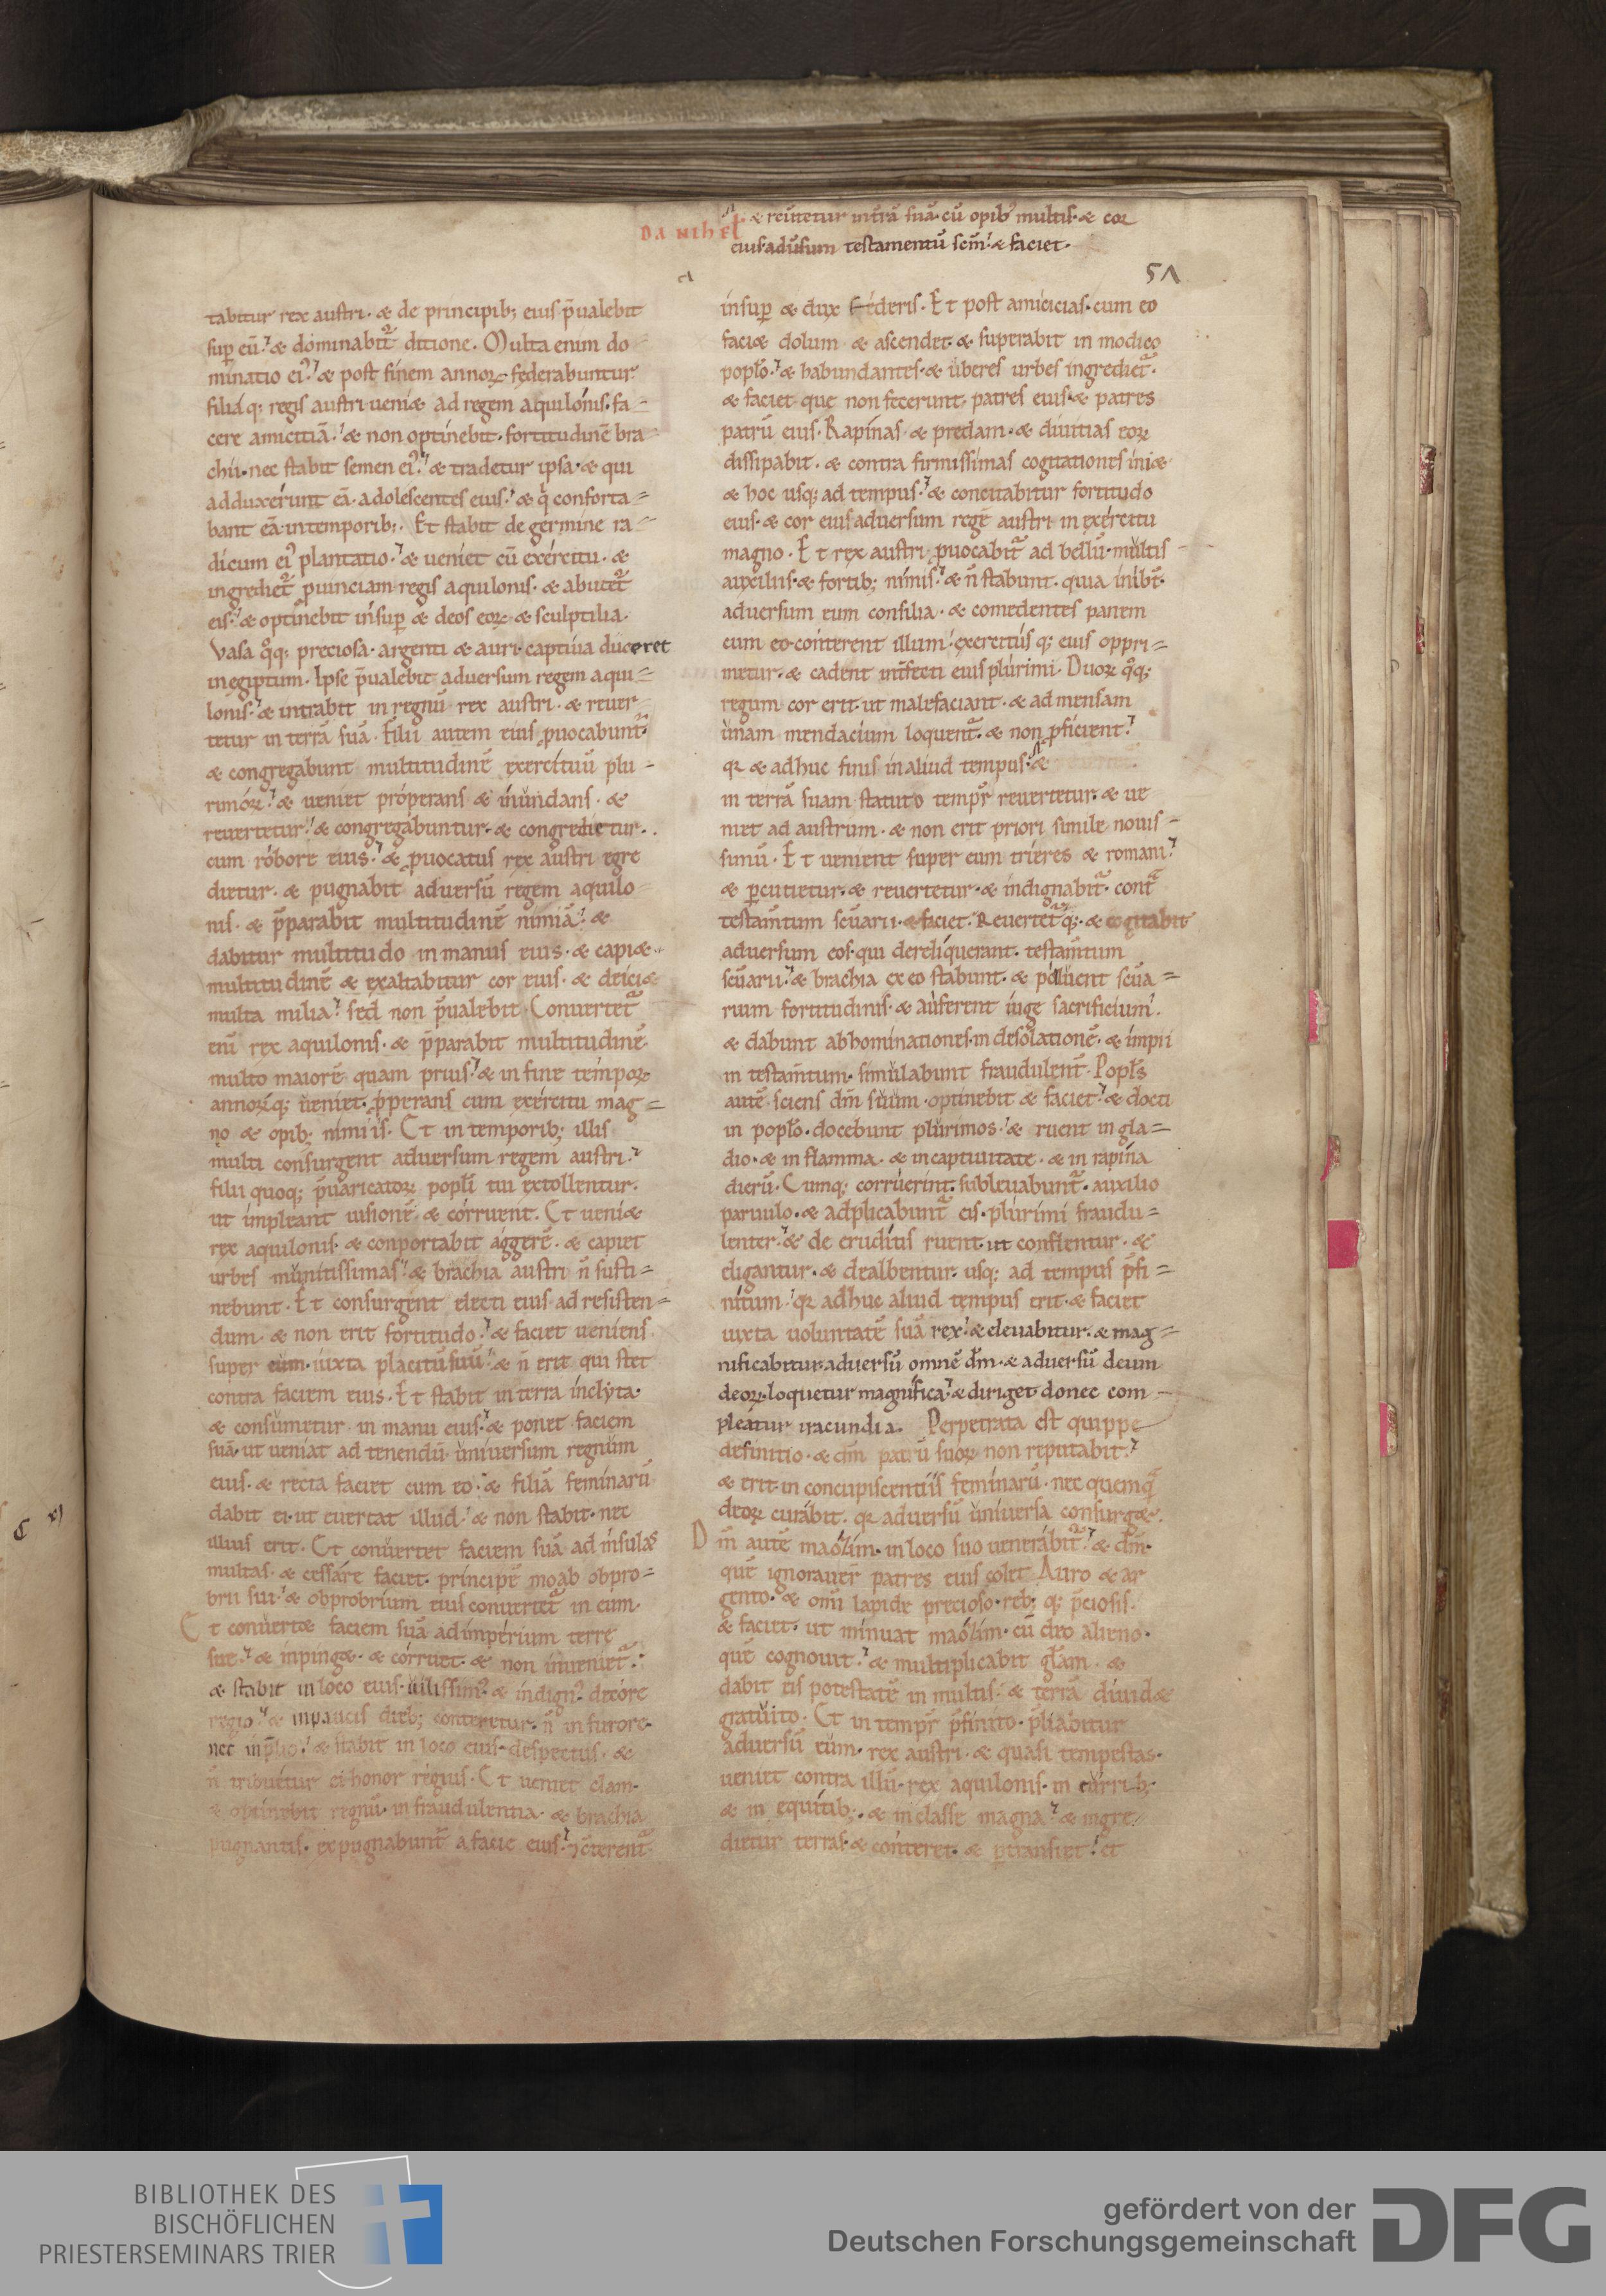 DANIHEL
⁊ & reu̅tetur in t̅rā suā· cū opib; multis· & cor
eius· adu̅sum testamentū scm̅· & faciet·
51
tabitur rex austri· & de principib; eius p̅ualebit
sup eū· & dominabit᷑ ditione. Multa enim do-
minatio ei᾽· & post finem annoꝝ federabuntur
filiaq; regis austri ueni& ad regem aquilonis· fa-
cere amicitiā· & non optinebit· fortitudinē bra-
chii· nec stabit semen ei᾽· & tradetur ipsa· & qui
adduxerunt eā· adolescentes eius· & q̇ conforta-
bant eā· in temporib;. Et stabit de germine ra-
dicum ei᾽ plantatio· & ueniet cū exercitu· &
ingrediet᷑ puinciam regis aquilonis· & abutet᷑
eis· & optinebit insup & deos eoꝝ & sculptilia·
Vasa q̊q; preciosa· argenti & auri· captiua duceret
in egiptum. Ipse p̅ualebit adversum regem aqui-
lonis· & intrabit in regnū rex austri· & rever-
tetur in terrā suā· Filii autem eius puocabunt᷑
& congregabunt multitudinē exercituū plu-
rimoꝝ· & ueniet properans & inundans· &
reuertetur· & congregabuntur· & congredietur.
cum robore eius· & puocatus rex austri egre
dietur· & pugnabit aduersū regem aquilo-
nis· & p̅parabit multitudinē nimiā· &
dabitur multitudo in manus eius· & capi&·
multitudinē & exaltabitur cor eius· & deici&
multa milia· sed non p̅ualebit· Conuertet᷑
eni̅ rex aquilonis· & p̅parabit multitudinē·
multo maiorē quam prius· & in fine tempoꝝ
annoꝝq; ueniet· pperans cum exercitu mag-
no & opib; nimiis. Et in temporib; illis
multi consurgent aduersum regem austri·
filii quoq; p̅uaricatoꝝ popl̅i tui extollentur·
ut impleant uisionē & corruent. Et ueni&
rex aquilonis· & conportabit aggerē· & capiet
urbes munitissimas· & brachia austri n̅ susti-
nebunt· Et consurgent electi eius ad resisten-
dum· & non erit fortitudo· & faciet ueniens
super eum· iuxta placitū suū· & n̅ erit qui stet
contra faciem eius. Et stabit in terra inclyta·
& consumetur in manu eius· & ponet faciem
suā· ut ueniat ad tenendū uniuersum regnum
eius· & recta faciet cum eo· & filiā feminarū
dabit ei· ut euertat illud· & non stabit· nec
illius erit. Et conuertet faciem suā ad insulas
multas· & cessare faciet· principē moab obpro-
brii sui· & obprobrium eius conuertet᷑ in eum·
Et conuert& faciem suā ad imperium terre
sue· & inping& · & corruet· & non inueniet᷑·
& stabit in loco eius· uilissim᾽ & indign᾽ decore
regio· & in paucis dieb; conteretur· n̅ in furore·
nec in p̅lio· & stabit in loco eius· despectus· &
n̅ tribuetur ei honor regius· Et ueniet clam·
& optinebit regnū· in fraudulentia· & brachia
pugnantis· expugnabunt᷑ a facie eius· ⁊ c̅terent᷑
insup & dux federis. Et post amicicias· cum eo
faci& dolum & ascendet· & superabit in modico
popl̅o· & habundantes· & uberes urbes ingrediet᷑·
& faciet que non fecerunt patres eius· & patres
patrū eius· Rapinas· & predam· & diuitias eoꝝ
dissipabit· & contra firmissimas cogitationes ini&
& hoc usq; ad tempus· & concitabitur fortitudo
eius· & cor eius aduersum regē austri in exercitu
magno· Et rex austri puocabit᷑ ad bellū· multis
auxiliis· & fortib; nimis· & n̅ stabunt· quia inibt̅·
aduersum eum consilia· & comedentes panem
cum eo· conterent illum· exercitus q; eius oppri-
metur· & cadent int̅fecti eius plurimi· Duoꝝ q̊q;
regum cor erit· ut malefaciant· & ad mensam
unam mendacium loquent᷑· & non pficient·
qꝛ & adhuc finis in aliud tempus· &
in terrā suam statuto tempr̅ reuertetur· & ue
niet ad austrum· & non erit priori simile nouis-
simū· Et uenient super eum trieres & romani·
& p̱cutietur· & reuertetur· & indignabit᷑· cont᷑
testam̅tum scu̅arii· & faciet· Reuertet᷑q;· & cogitabit
aduersum eos· qui dereliquerant· testam̅tum
scu̅arii· & brachia ex eo stabunt· & polluent scu̅a-
rium fortitudinis· & auferent iuge sacrificium·
& dabunt abhominationes· in desolationē· & impii
in testam̅tum· simulabunt fraudulent̅· Popl̅s
autē sciens dm̅ suum· optinebit & faciet· & docti
in popl̅o· docebunt plurimos· & ruent in gla-
dio· & in flamma· & in captiuitate· & in rapina
dierū· Cumq; corruerint· subleuabunt᷑· auxilio
paruulo· & adplicabunt᷑ eis· plurimi fraudu-
lenter· & de eruditis ruent· ut conflentur· &
eligantur· & dealbentur· usq; ad tempus p̅fi-
nitum· qꝛ adhuc aliud tempus erit· & faciet
iuxta uoluntatē suā rex· & eleuabitur· & mag-
nificabitur aduersū omnē dm̅· & aduersū deum
deoꝝ· loquetur magnifica· & diriget donec com-
pleatur iracundia. Perpetrata est quippe
definitio· & dm̅ patrū suoꝝ non reputabit·
& erit in concupiscentiis feminarū· nec quemq̄
deoꝝ curabit· qꝛ aduersū uniuersa consurg&·
Dm̅ autē maozim· in loco suo uenerabit᷑· & dm̅·
quē ignorauer̅ patres eius colet· Auro & ar
gento· & omi̅ lapide precioso· reb; q; p̅ciosis·
& faciet· ut minuat maozim· cū deo alieno·
quē cognouit· & multiplicabit gl̅am· &
dabit eis potestatē in multis· & terrā diuid&
gratuito· Et in tempr̅ p̅finito· p̅liabitur
aduersū eum· rex austri· & quasi tempestas·
ueniet contra illū· rex aquilonis· in currib;·
& in equitib;· & in classe magna· & ingre-
dietur terras· & conteret· & p̱transiet· et
BIBLIOTHEK DES
BISCHÖFLICHEN
PRIESTERSEMINARS TRIER
gefördert von der
Deutschen Forschungsgemeinschaft
DFG